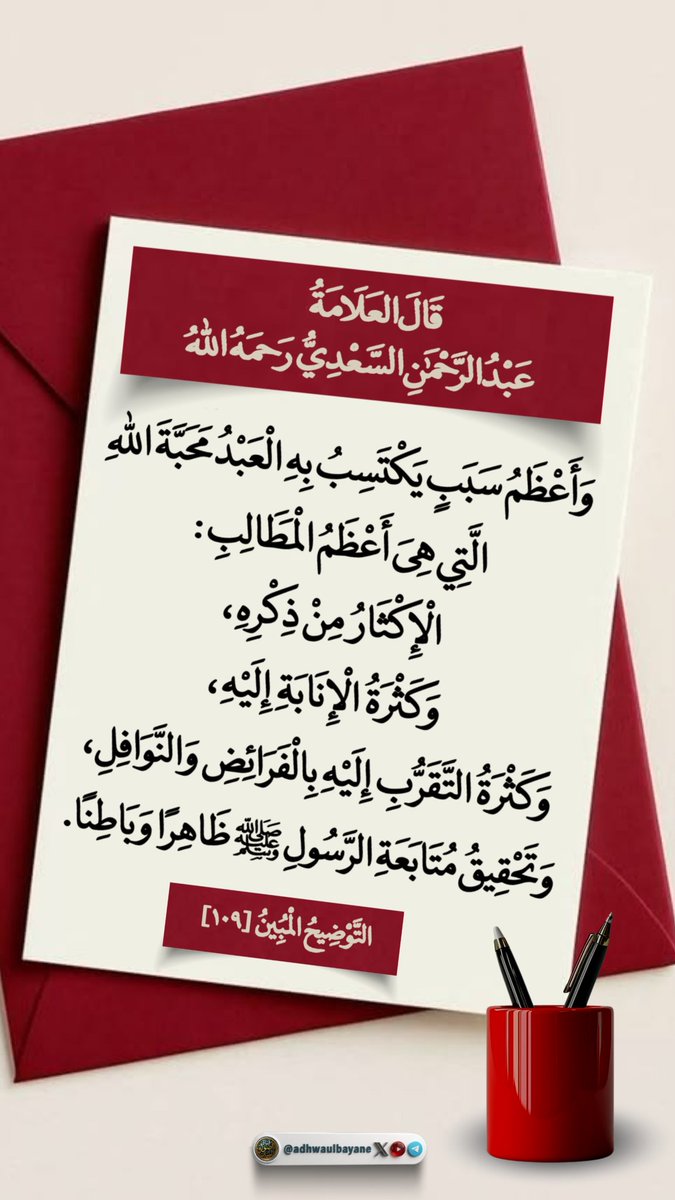 قَالَ العَلَامَةُ
عَبْدُ الرَّحْمَٰنِ السَّعْدِيُّ رَحِمَهُ اللهُ
وَأَعْظَمُ سَبَبٍ يَكْتَسِبُ بِهِ الْعَبْدُ مَحَبَّةَ اللهِ
الَّتِي هِيَ أَعْظَمُ الْمَطَالِبِ:
الْإِكْثَارُ مِنْ ذِكْرِهِ،
وَكَثْرَةُ الْإِنَابَةِ إِلَيْهِ،
وَكَثْرَةُ التَّقَرُّبِ إِلَيْهِ بِالْفَرَائِضِ وَالنَّوَافِلِ،
وَتَحْقِيقُ مُتَابَعَةِ الرَّسُولِ ﷺ ظَاهِرًا وَبَاطِنًا.
التَّوْضِيحُ الْمُبِينُ [١٠٩]
@adhwaulbayane